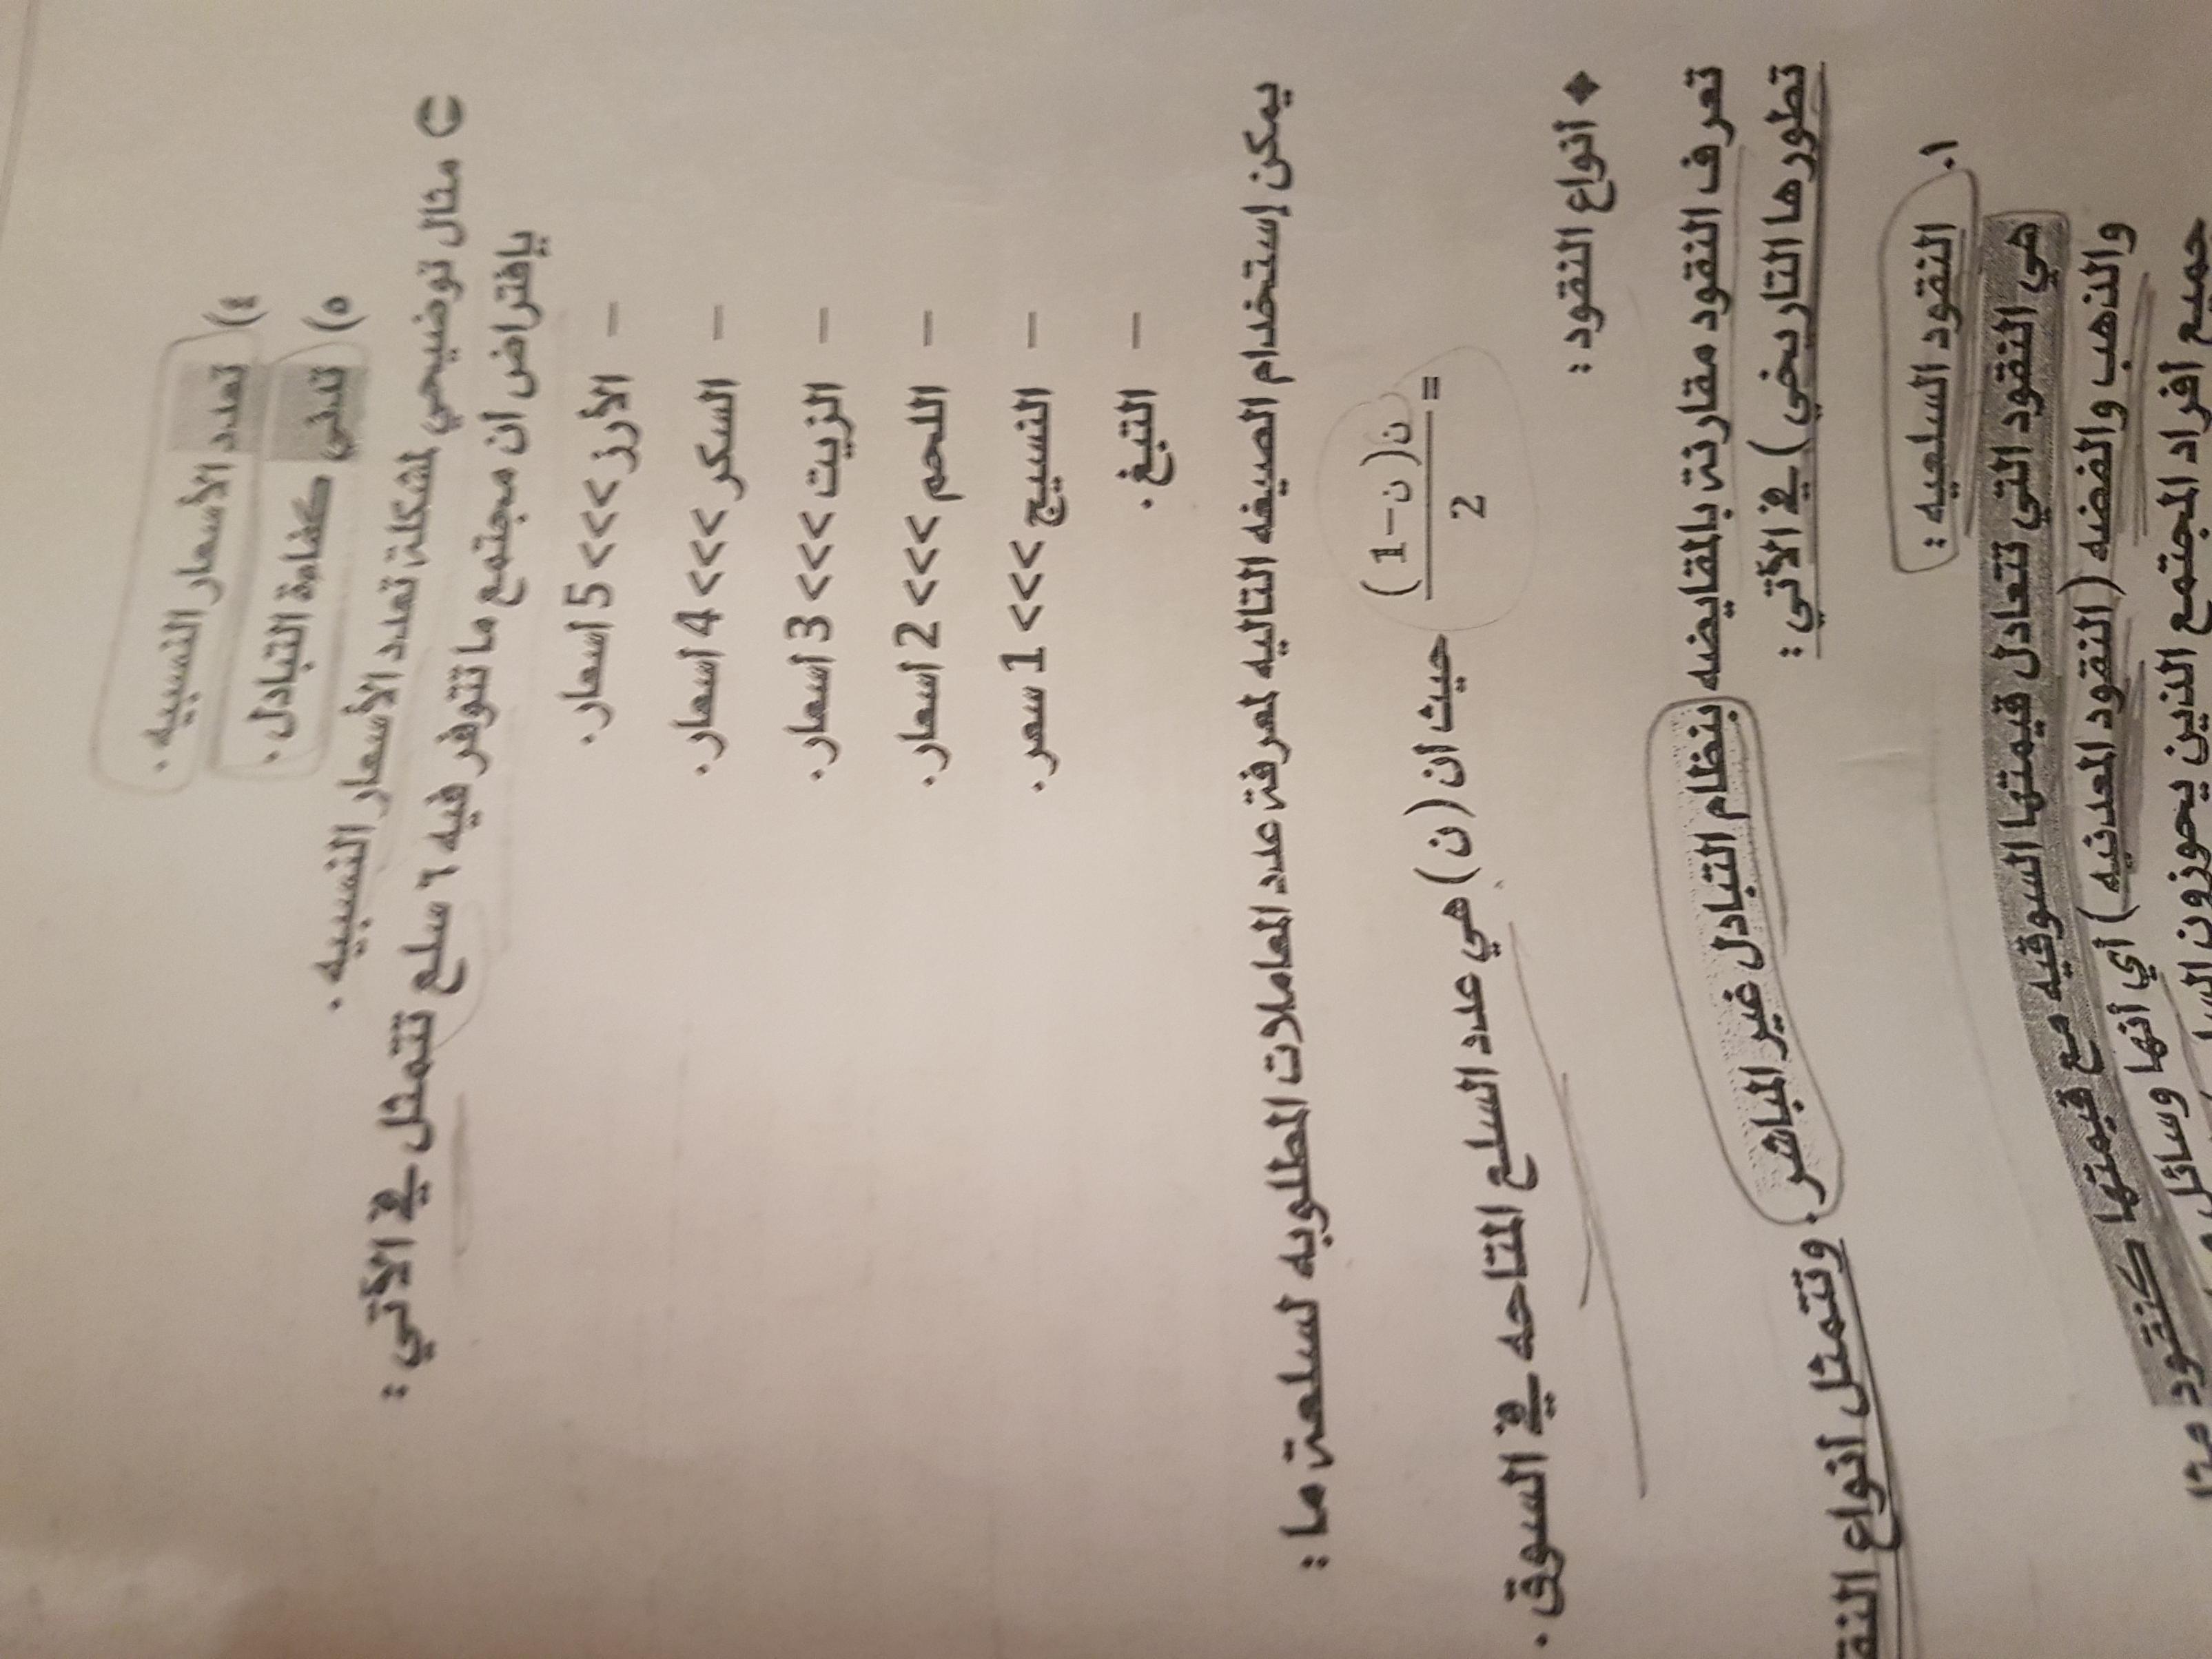 ٤) تعدد الأسعار النسبيه.
٥) تدني كفاءة التبادل.
مثال توضيحي لمشكلة تعدد الأسعار النسبيه.
بإفتراض أن مجتمع ما تتوفر فيه ٦ سلع تتمثل في الآتي :
– الأرز >>> 5 اسعار.
– السكر >>> 4 اسعار.
– الزيت >>> 3 اسعار.
– اللحم >>> 2 اسعار.
– النسيج >>> 1 سعر.
– التبغ.
يمكن إستخدام الصيغه التاليه لمعرفة عدد المعاملات المطلوبه لسلعة ما :
= ن(ن−1) / 2 حيث أن (ن) هي عدد السلع المتاحه في السوق.
◆ أنواع النقود :
تعرف النقود مقارنة بالمقايضه بنظام التبادل غير المباشر. وتتمثل أنواع
تطورها التاريخي) في الآتي :
١. النقود السلعيه :
هي النقود التي تتعادل قيمتها السوقيه مع قيمتها كنقود
والذهب والفضه (النقود المعدنيه) أي أنها وسائل
جميع أفراد المجتمع الذين يحوزون